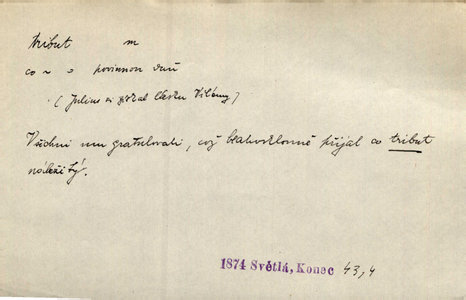 tribut m
co ~ o povinnou daň
(Julius získal lásku Vilémy)
Všichni mu gratulovali, což blahosklonně přijal co tribut
náležitý.
1874 Světlá, Konec 43,4